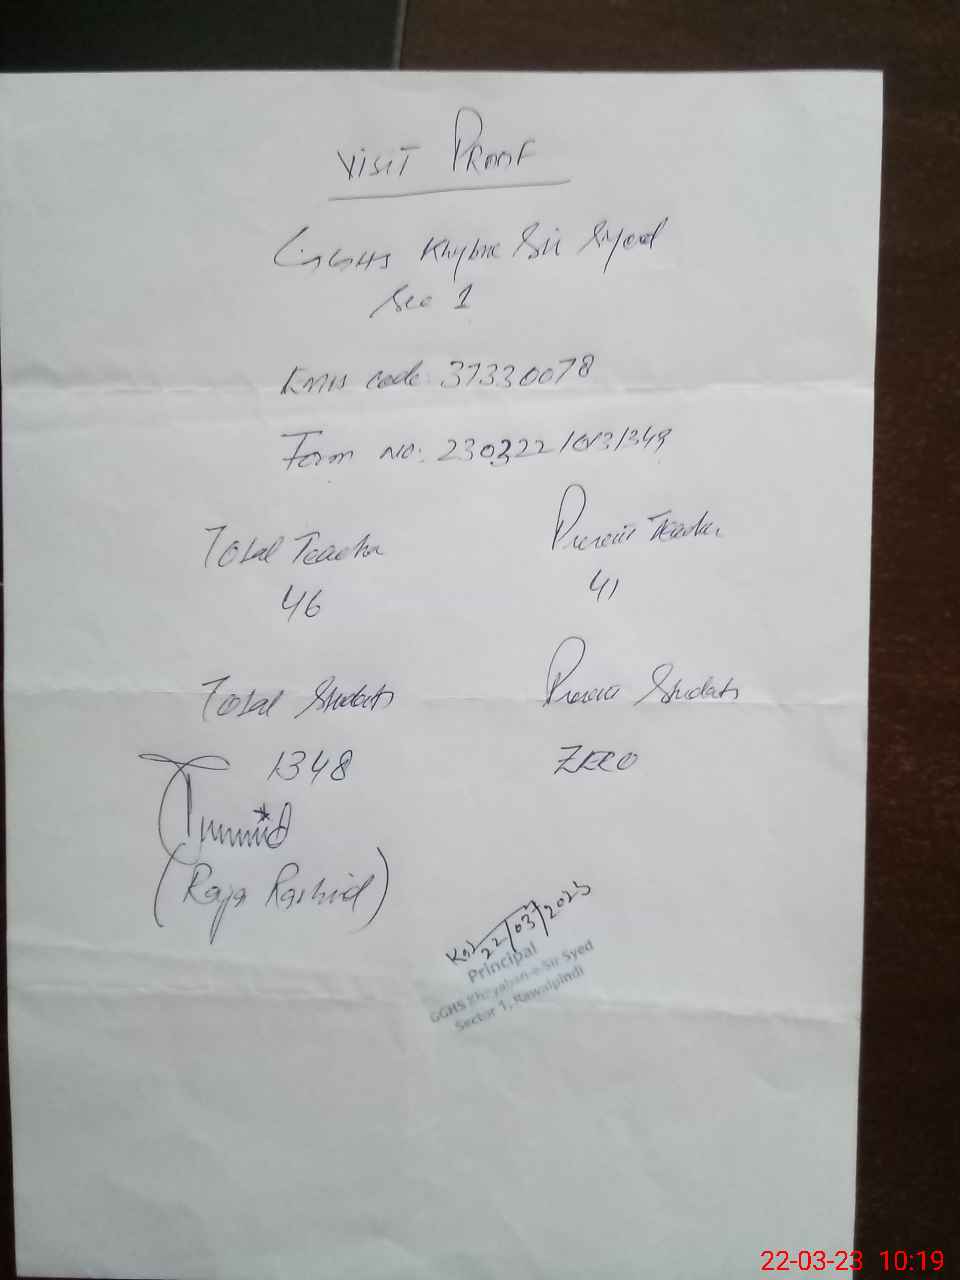 VISIT PROOF
GGHS Khybne Sir Syed
Sec 1
EMIS code: 37330078
Form no: 230322/013/349
Total Teacher Present Teacher
46 41
Total Students Present Students
1348 ZERO
(Raja Rashid)
22/03/2023
Principal
GGHS Khayaban-e-Sir Syed
Sector 1, Rawalpindi
22-03-23 10:19